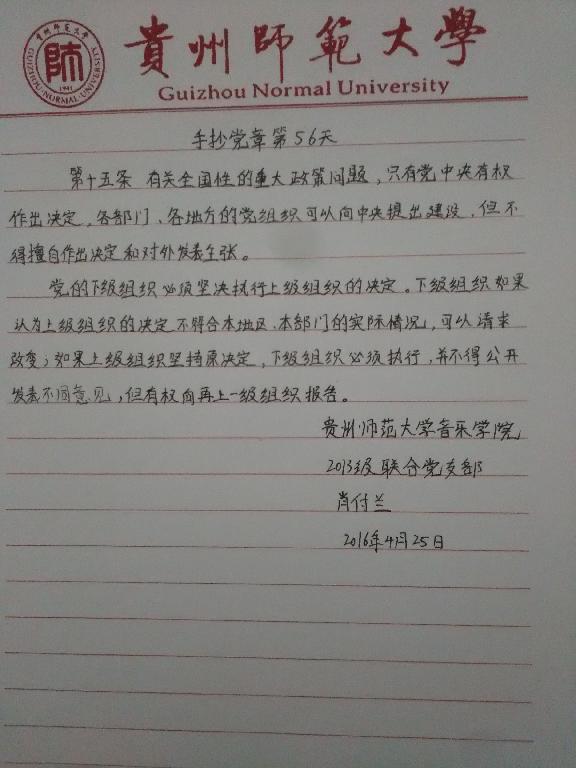 貴州師範大學
Guizhou Normal University
贵州师范大学
師
1941
GUIZHOU·NORMAL·UNIVERSITY
手抄党章第56天
第十五条 有关全国性的重大政策问题，只有党中央有权
作出决定，各部门、各地方的党组织可以向中央提出建设，但不
得擅自作出决定和对外发表主张。
党的下级组织必须坚决执行上级组织的决定。下级组织如果
认为上级组织的决定不符合本地区、本部门的实际情况，可以请求
改变；如果上级组织坚持原决定，下级组织必须执行，并不得公开
发表不同意见，但有权向再上一级组织报告。
贵州师范大学音乐学院
2013级联合党支部
肖付兰
2016年4月25日